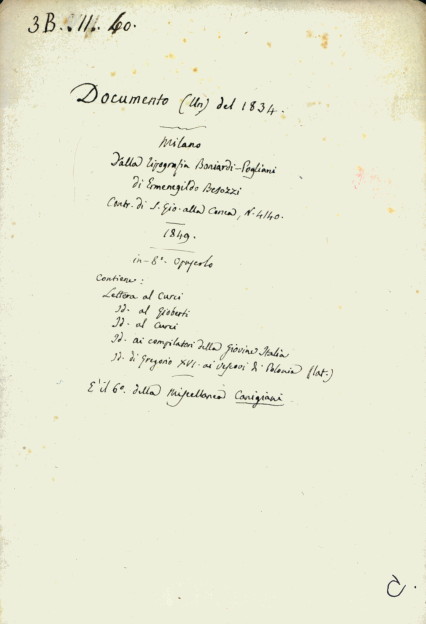 3 B. 11. 40.
Documento (Un) del 1834.
Milano
Dalla Tipografia Boniardi-Pogliani
di Ermenegildo Besozzi
Contr. di S. Gio. alla Conca, N. 4140.
1849.
in-8º. Opuscolo
Contiene:
Lettera al Curci
Id. al Gioberti
Id. al Curci
Id. ai compilatori della Giovine Italia
Id. di Gregorio XVI. ai vescovi di Polonia (lat.)
E' il 6º. della Miscellanea Canigiani
C.